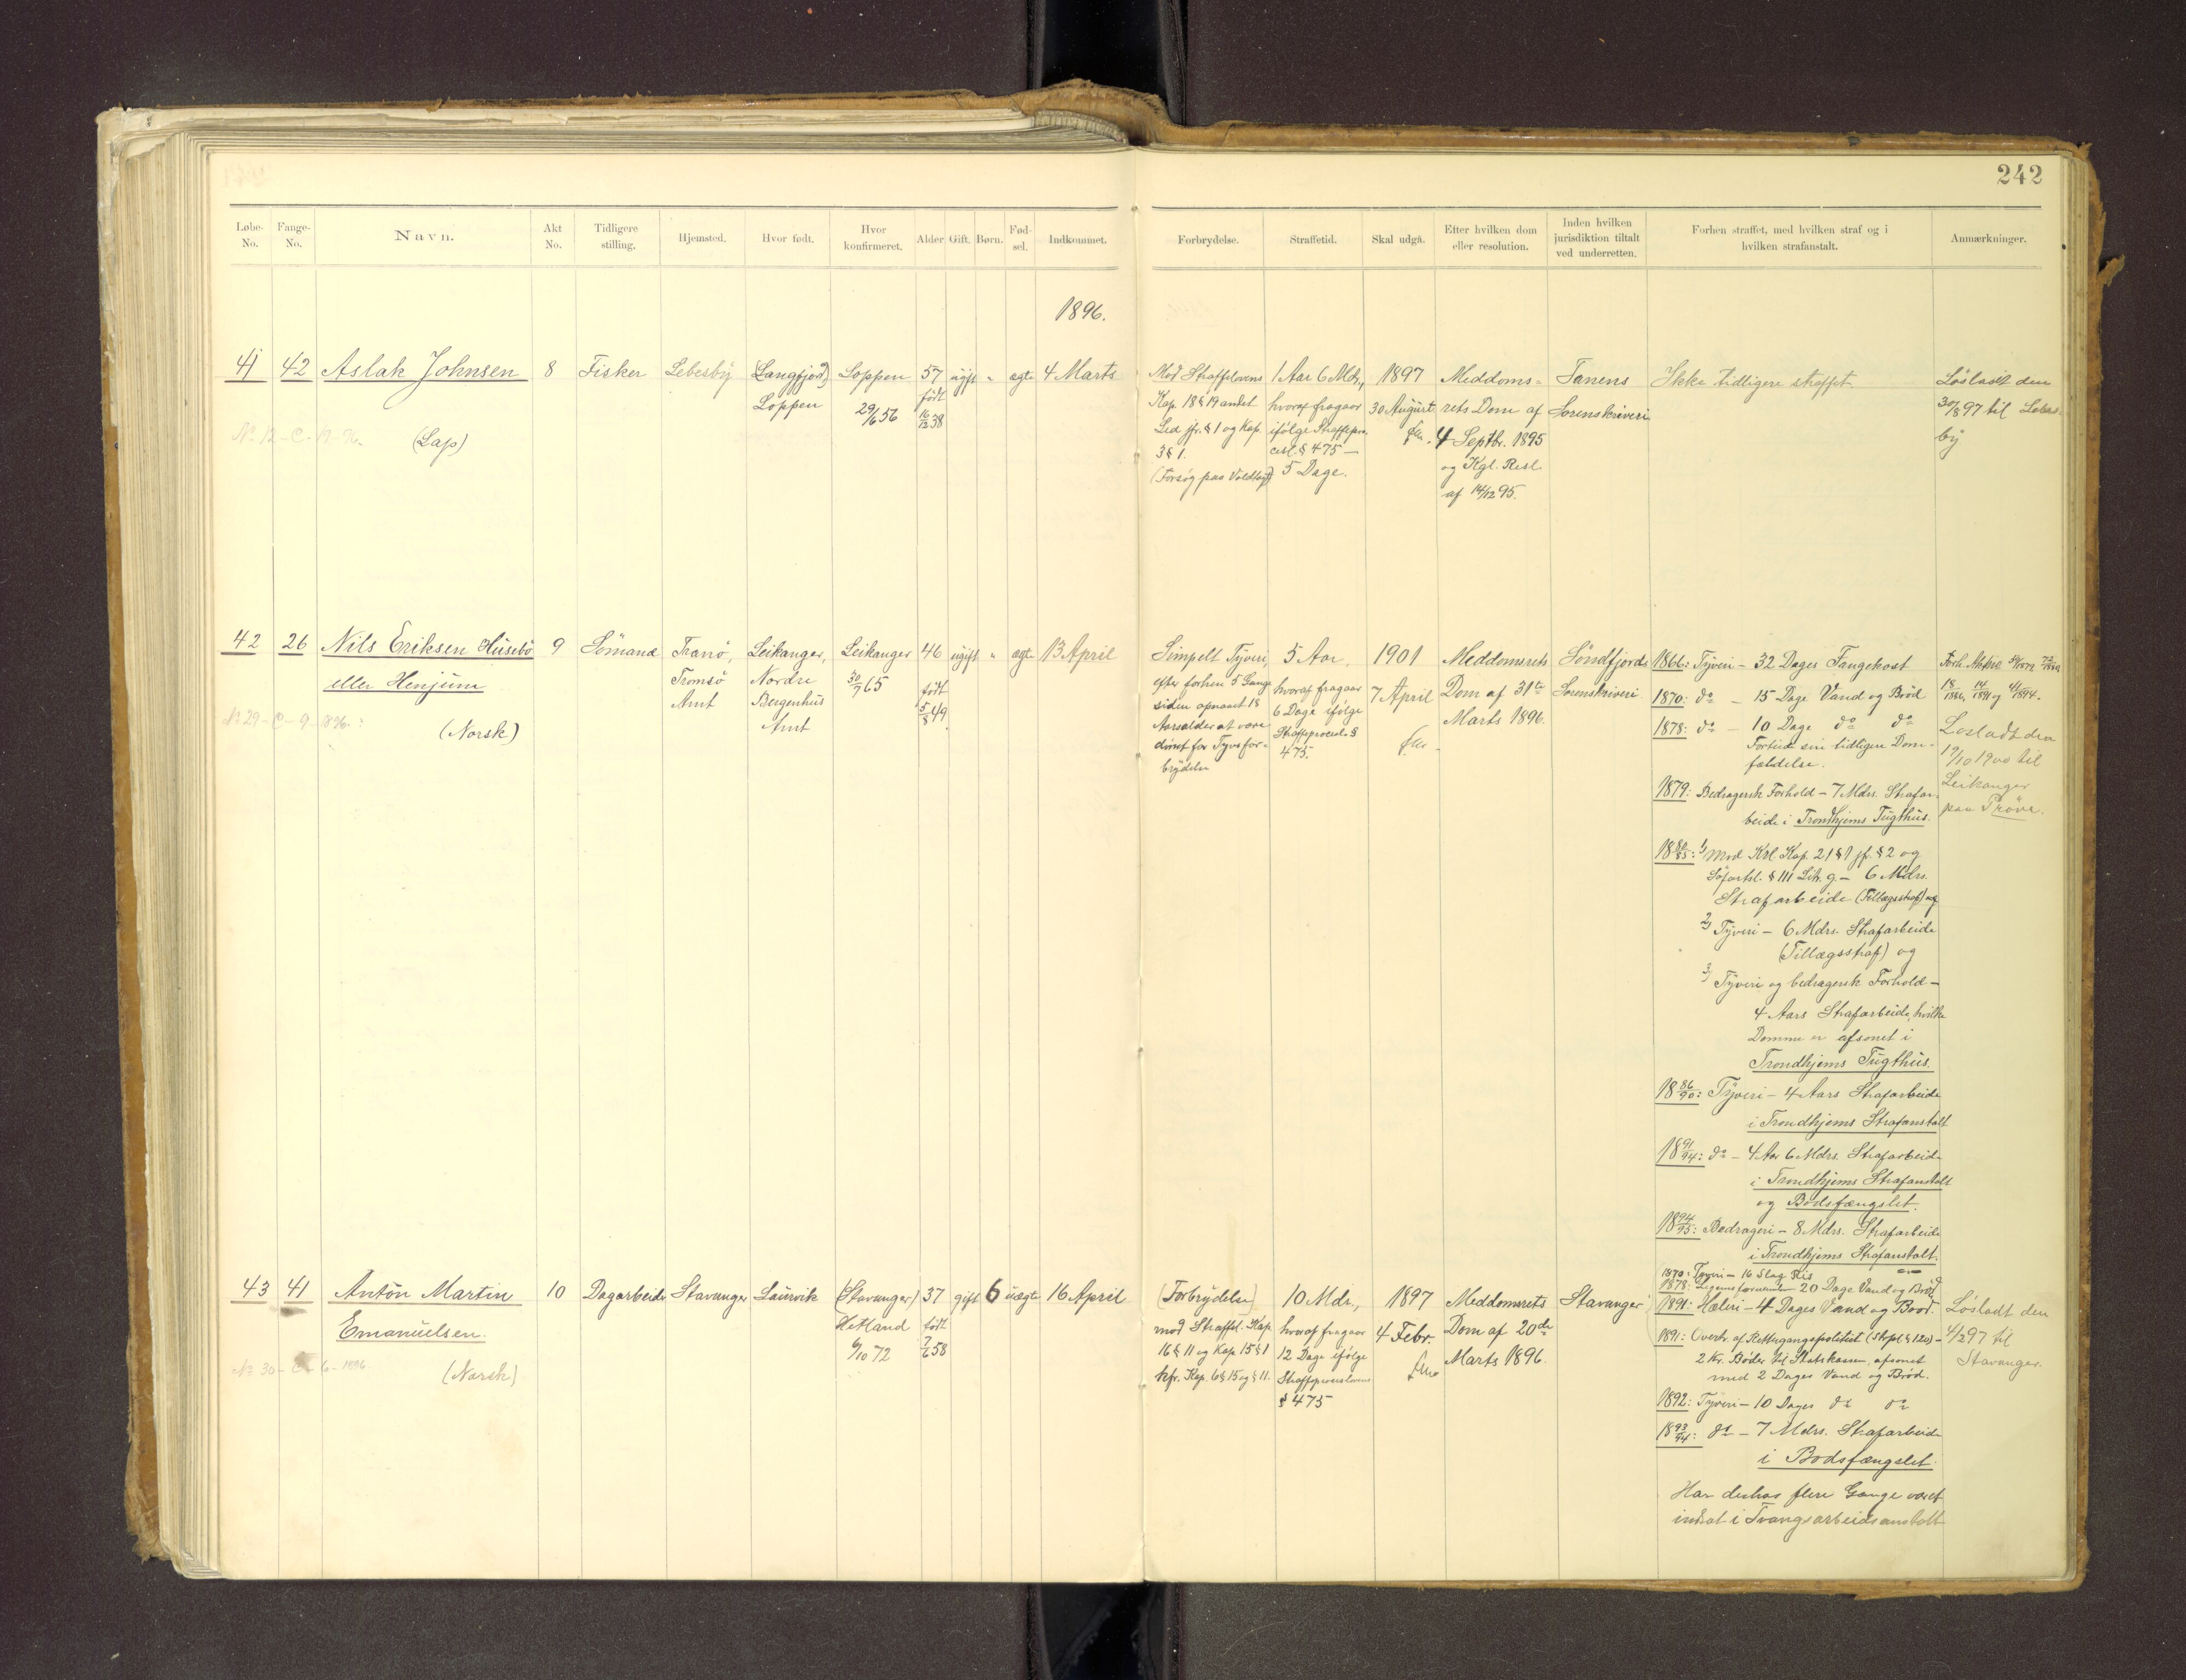 242
Løbe-No.
Fange-No.
Navn.
Akt No.
Tidligere stilling.
Hjemsted.
Hvor født.
Hvor konfirmeret.
Alder
Gift.
Børn.
Fød-sel.
Indkommet.
Forbrydelse.
Straffetid.
Skal udgå.
Efter hvilken dom eller resolution.
Inden hvilken jurisdiktion tiltalt ved underretten.
Forhen straffet, med hvilken straf og i hvilken strafanstalt.
Anmærkninger.
1896.
41
42
Aslak Johnsen
(Lap)
No 12-C-19-96.
8
Fisker
Lebesby
(Langfjord)
Loppen
Loppen
29/6 56
57
født
16/12 38
ugift
"
ægte
4 Marts
Mod Straffelovens
Kap. 18 § 19 andet
Led jfr. § 1 og Kap.
3 § 1.
(Forsøg paa Voldtægt)
1 Aar 6 Mdr.,
hvoraf fragaar
ifølge Straffepro-
cesl. § 475 —
5 Dage.
1897
30 August
Meddoms=
rets Dom af
4 Septbr. 1895
og Kgl. Resl.
af 14/12 95.
Tanens
Sorenskriveri
Ikke tidligere straffet.
Løsladt den
30/8 97 til Lebes-
by
42
26
Nils Eriksen Husebö
eller Henjum
(Norsk)
No 29-C-9-896.
9
Sömand
Tranö,
Tromsö
Amt
Leikanger,
Nordre
Bergenhus
Amt
Leikanger
30/7 65
46
født
5/8 49
ugift
"
ægte
13 April
Simpelt Tyveri,
efter forhen 5 Gange
siden opnaaet 18
Aarsalder at være
dömt for Tyvsfor-
brydelse
5 Aar,
hvoraf fragaar
6 Dage ifølge
Straffeprocesl. §
475.
1901
7 April
Meddomsrets
Dom af 31te
Marts 1896.
Söndfjords
Sorenskriveri
1866: Tyveri - 32 Dages Fangekost
1870: do - 15 Dage Vand og Bröd
1878: do - 10 Dage do do
Fortiede sin tidligere Dom-
fældelse.
1879: Bedragersk Forhold - 7 Mdrs. Strafar-
beide i Trondhjems Tugthus.
1880/85: 1) Mod Krl. Kap. 21 § 1 jf. § 2 og
Söfartsl. § 111 Litr. g - 6 Mdrs.
Strafarbeide (Tillægsstraf) og
2) Tyveri - 6 Mdrs. Strafarbeide
(Tillægsstraf) og
3) Tyveri og bedragersk Forhold -
4 Aars Strafarbeide, hvilke
Domme er afsonet i
Trondhjems Tugthus.
1886/90: Tyveri - 4 Aars Strafarbeide
i Trondhjems Strafanstalt
1891/94: do - 4 Aar 6 Mdrs. Strafarbeide
i Trondhjems Strafanstalt
og Bodsfængslet.
1894/95: Bedrageri - 8 Mdrs. Strafarbeide
i Trondhjems Strafanstalt.
Løsladt den
19/10 1900 til
Leikanger
paa Pröve.
43
41
Anton Martin
Emanuelsen.
(Norsk)
No 30-C-6-1896.
10
Dagarbeider
Stavanger
Laurvik
(Stavanger)
Hetland
6/10 72
37
født
7/6 58
gift
6
uægte
16 April
(Forbrydelse)
mod Straffel. Kap.
16 § 11 og Kap. 15 § 1
kfr. Kap. 6 § 15 og § 11.
10 Mdr.,
hvoraf fragaar
12 Dage ifølge
Straffeproceslovens
§ 475
1897
4 Febr.
Meddomsrets
Dom af 20de
Marts 1896.
Stavanger
1870: Tyveri - 16 Slag Ris
1878: 20 Dage Vand og Bröd
1891: Hæleri - 4 Dages Vand og Bröd.
1891: Overtr. af Rettergangspolitiet (Strpl § 120) -
2 Kr. Bøder til Statskassen, afsonet
med 2 Dages Vand og Bröd.
1892: Tyveri - 10 Dages do do
1893/94: do - 7 Mdrs. Strafarbeide
i Bodsfængslet.
Har desuden flere Gange været
indsat i Tvangsarbeidsanstalt
Løsladt den
4/2 97 til
Stavanger.